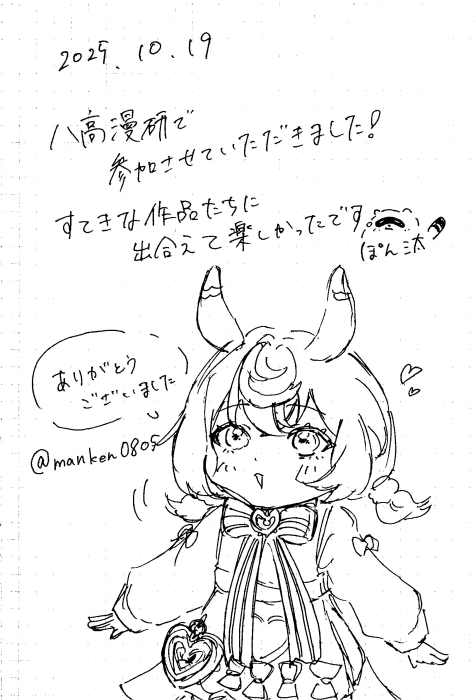 2025.10.19
八高漫研で
参加させていただきました!
すてきな作品たちに
出合えて楽しかったです
ぽん汰
ありがとう
ございました
@manken0805